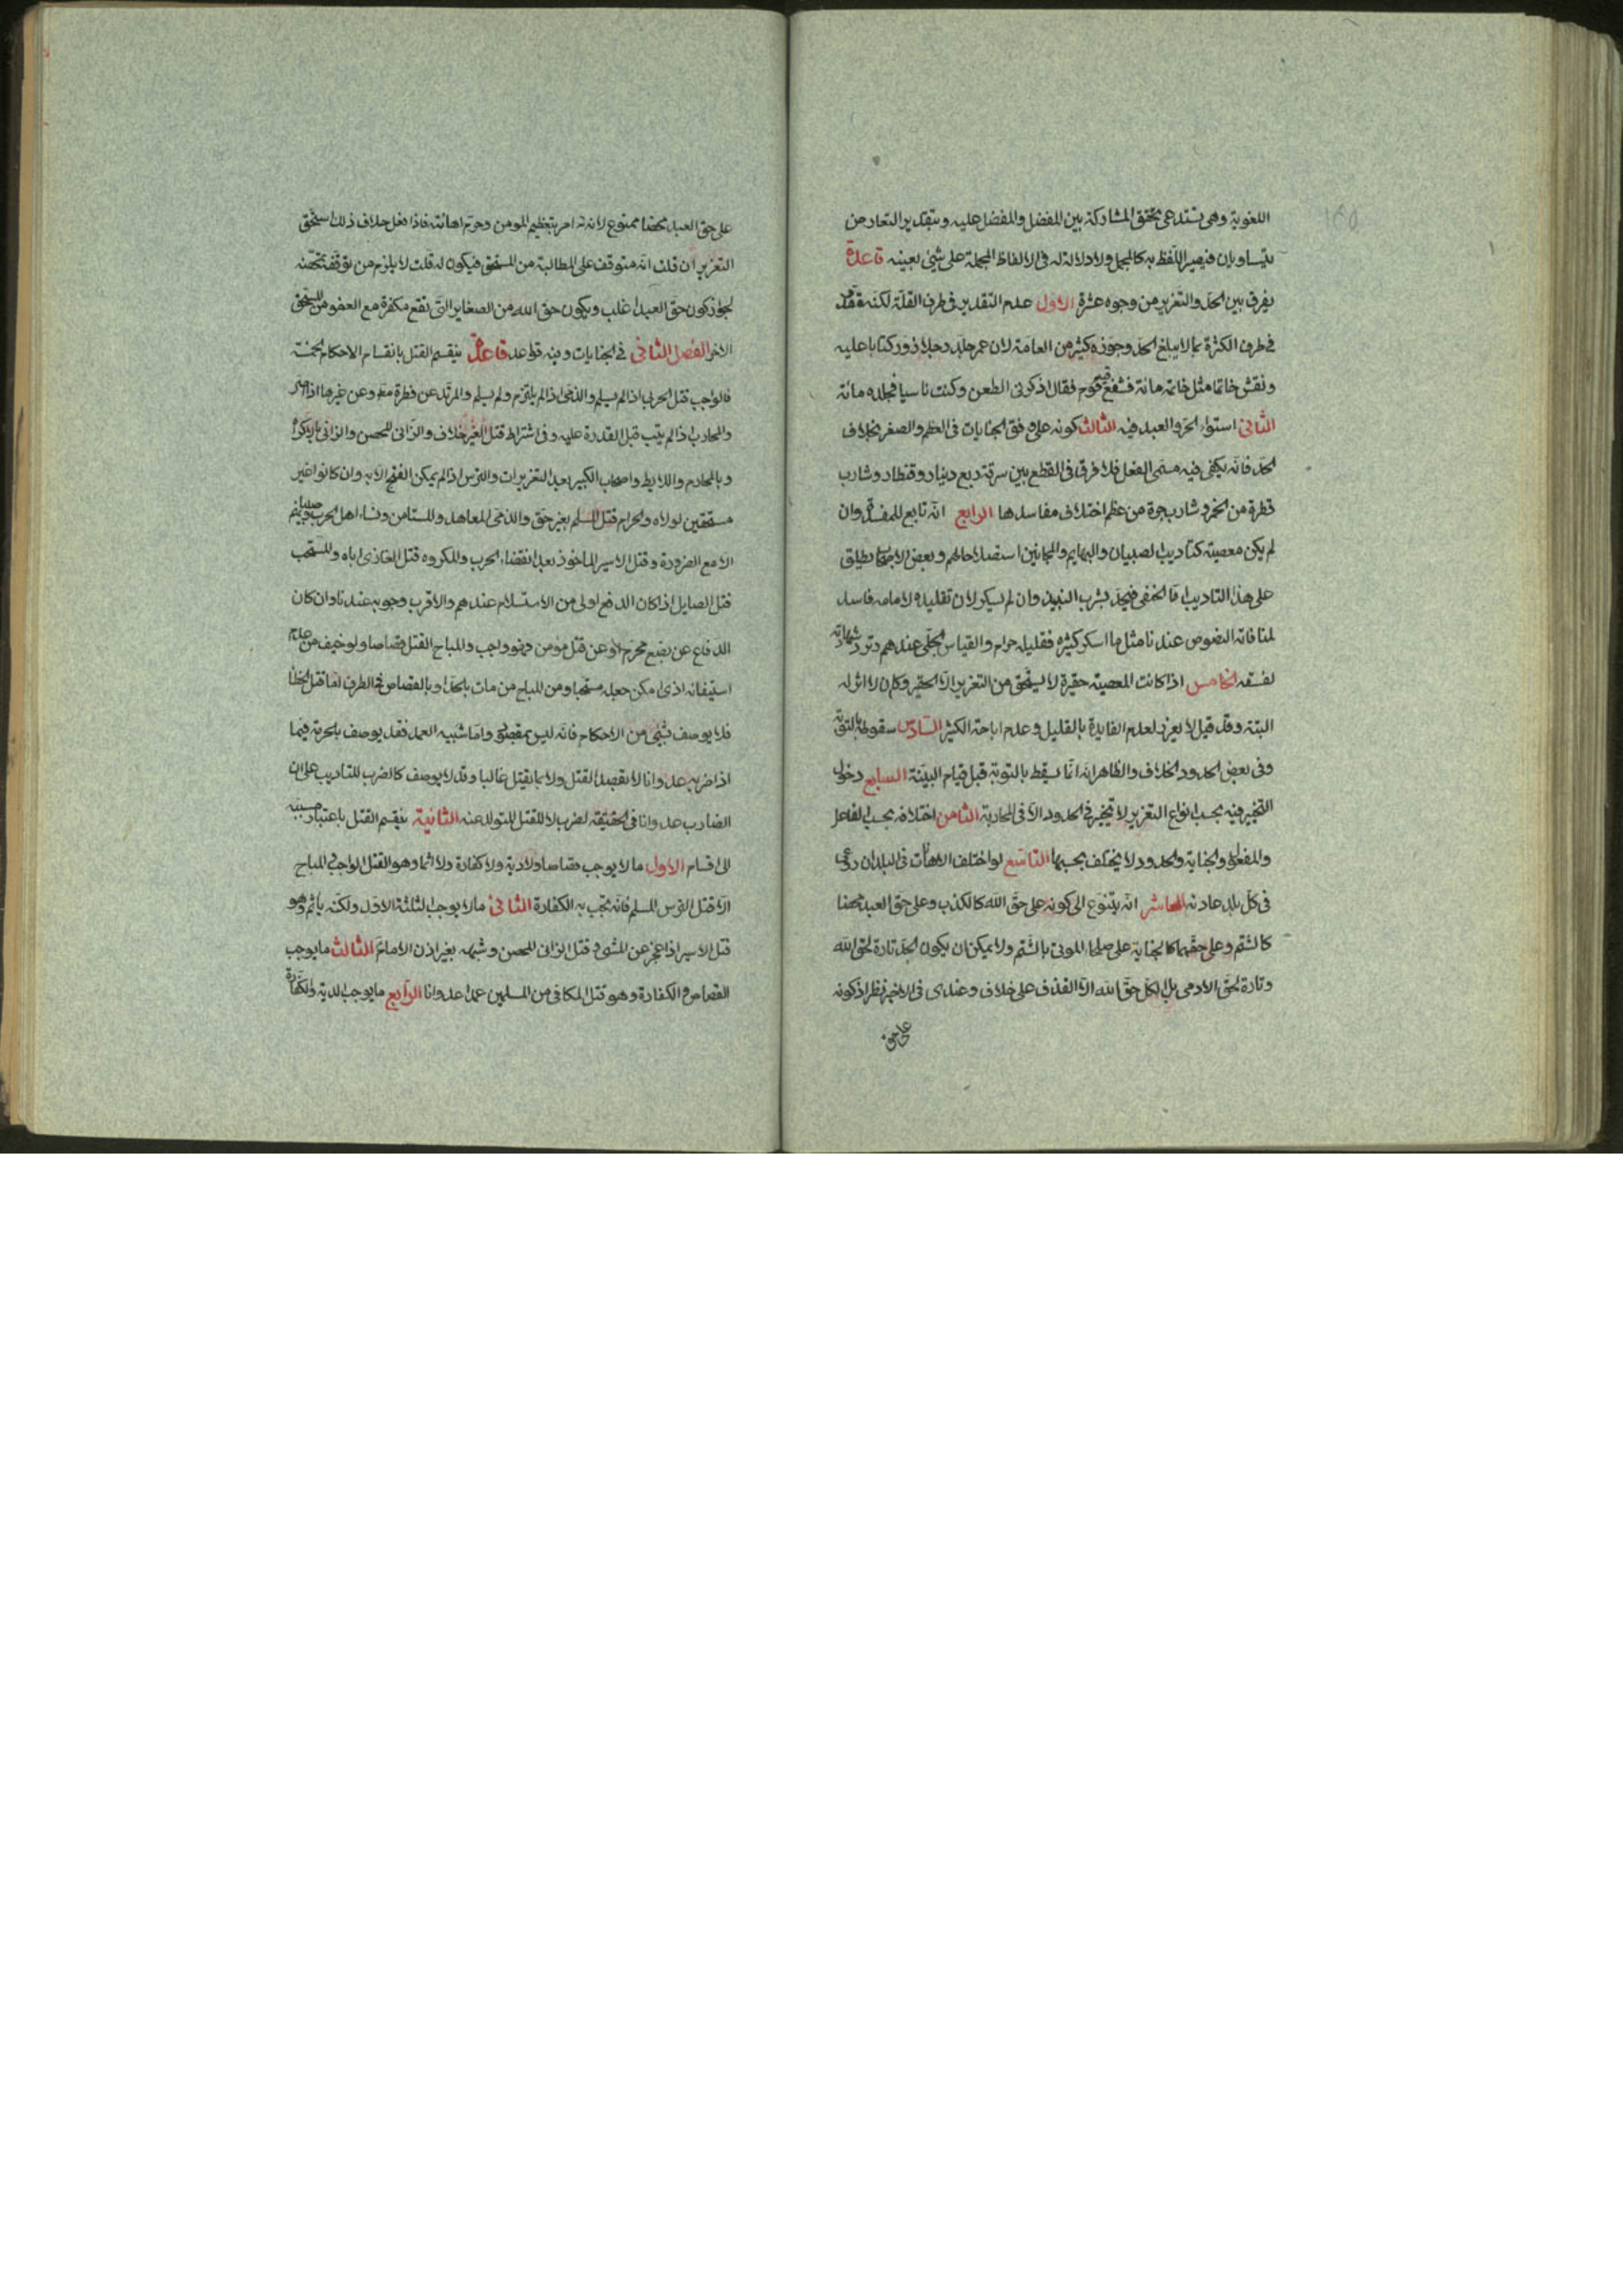 اللغوية وهى تستدعى تحقق المشاركة بين المفضل والمفضل عليه وبتقدير التعارض
يتساويان فيصير اللفظ به كالمجمل ولا دلالة له فى الالفاظ المجملة على شئ بعينه قاعدة
يفرق بين الحد والتعزير من وجوه عشرة الاول عدم التقدير فى طرف القلة لكنه مقدر
فى طرف الكثرة بما لا يبلغ الحد وجوزه كثير من العامة لان عمر جلد رجلا زور كتابا عليه
ونقش خاتما مثل خاتمه مائة فشفع فيه قوم فقال اذكرونى الطعن وكنت ناسيا فجلده مائة
الثانى استواء الحر والعبد فيه الثالث كونه على وفق الجنايات فى العظم والصغر بخلاف
الحد فانه يكفى فيه مسمى الفعل فلا فرق فى القطع بين سرقة ربع دينار وقنطار وشارب
قطرة من الخمر وشارب جرة من عظم اختلاف مفاسدها الرابع انه تابع للمفسدة وان
لم يكن معصية كتاديب الصبيان والبهايم والمجانين استصلاحا لهم وبعض الاصحاب يطلق
على هذا التاديب اما الحنفى فيحد بشرب النبيذ وان لم يسكر لان تقليده لامامه فاسد
لمنافاته النصوص عندنا مثل ما اسكر كثيره فقليله حرام والقياس الجلى عندهم وترد شهادته
لفسقه الخامس اذا كانت المعصية حقيرة لا يستحق من التعزير الا الحقير وكان لا اثر له
البتة وقد قيل لا يعزر لعدم الفايدة بالقليل وعدم اباحة الكثير السادس سقوطه بالتوبة
وفى بعض الحدود الخلاف والظاهر انه انما يسقط بالتوبة قبل قيام البينة السابع دخول
التخيير فيه بحسب انواع التعزير لا تخيير فى الحدود الا فى المحاربة الثامن اختلافه بحسب الفاعل
والمفعول والجناية والحدود لا يختلف بحسبها التاسع لو اختلف الاهانات فى البلدان روعى
فى كل بلد عادته العاشر انه يتنوع الى كونه على حق الله كالكذب وعلى حق العبد محضا
كالشتم وعلى حقهما كالجناية على صلحاء الموتى بالشتم ولا يمكن ان يكون الحد تارة لحق الله
وتارة لحق الادمى بل الكل حق الله الا القذف على خلاف وعندى فى الاخير نظر اذ كونه
على حق
على حق العبد محضا ممنوع لانه تع امر بتعظيم المومن وحرم اهانته فاذا فعل خلاف ذلك استحق
التعزير ان قلت انه متوقف على المطالبة من المستحق فيكون له قلت لا يلزم من توقفه تمحضه
لجواز كون حق العبد اغلب ويكون حق الله من الصغاير التى تقع مكفرة مع العفو من المستحق
الاخر الفصل الثانى فى الجنايات وفيه قواعد قاعدة ينقسم القتل بانقسام الاحكام الخمسة
فالواجب قتل الحربى اذا لم يسلم والذمى اذا لم يلتزم ولم يسلم والمرتد عن فطرة مطلقا وعن غيرها اذا اصر
والمحارب اذا لم يتب قبل القدرة عليه وفى اشتراط قتل الغير خلاف والزانى المحصن والزانى بالاكراه
وبالمحارم واللايط واصحاب الكبير بعد التعزيرات والترس اذا لم يمكن الفتح الا به وان كانوا غير
مستحقين لولاه والحرام قتل المسلم بغير حق والذمى المعاهد والمستامن ونساء اهل الحرب وصبيانهم
الا مع الضرورة وقتل الاسير الماخوذ بعد انقضاء الحرب والمكروه قتل الغازى اباه والمستحب
قتل الصايل اذا كان الدفع اولى من الاستسلام عندهم والاقرب وجوبه عندنا وان كان
الدفاع عن بضع محرم او عن قتل مومن فهو واجب والمباح القتل قصاصا ولو خيف من عدم
استيفائه اذى امكن جعله مستحبا ومن المباح من مات بالحد او بالقصاص فى الطرف اما قتل الخطأ
فلا يوصف بشئ من الاحكام فانه ليس بمقصود واما شبيه العمد فقد يوصف بالحرمة فيما
اذا ضربه عدوانا لا بقصد القتل ولا بما يقتل غالبا وقد لا يوصف كالضرب للتاديب على ان
الضارب عدوانا فى الحقيقة لضرب لا للقتل المتولد عنه الثانية ينقسم القتل باعتبار سببه
الى اقسام الاول ما لا يوجب قصاصا ولا دية ولا كفارة ولا اثما وهو القتل الواجب والمباح
الا قتل الترس المسلم فانه تجب به الكفارة الثانى ما لا يوجب الثلثة الاول ولكنه ياثم وهو
قتل الاسير اذا عجز عن المشى وقتل الزانى المحصن وشبهه بغير اذن الامام الثالث ما يوجب
القصاص والكفارة وهو قتل المكافى من المسلمين عمدا عدوانا الرابع ما يوجب الدية والكفارة